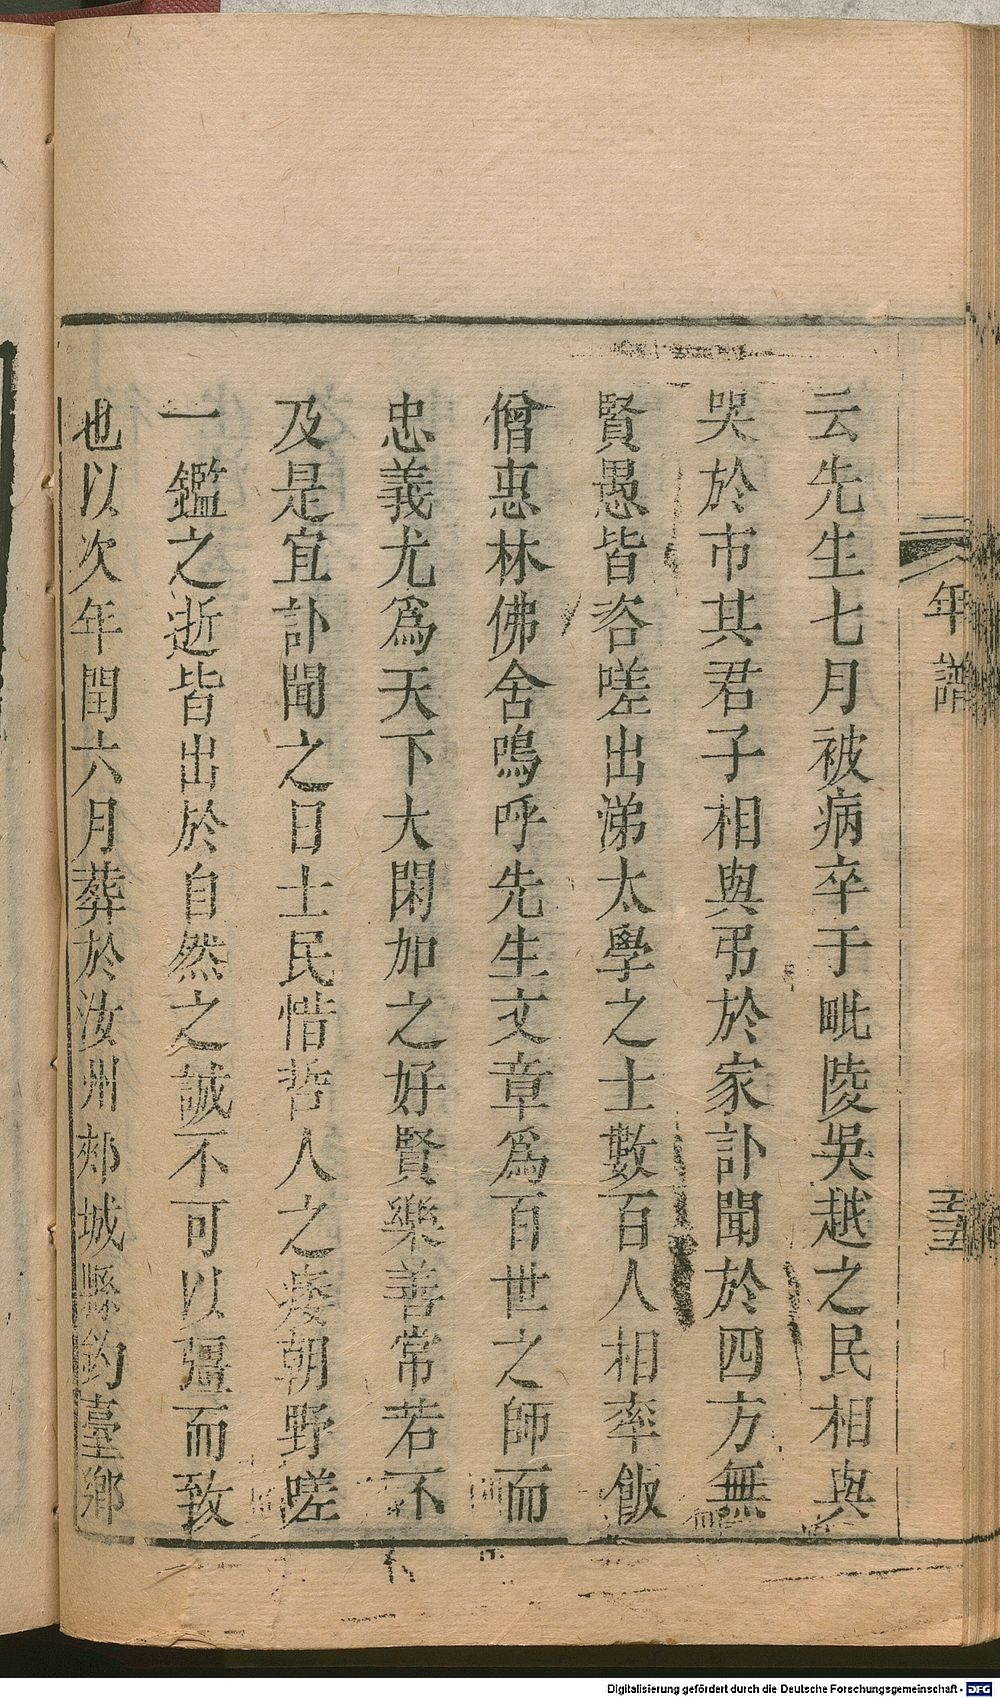 云先生七月被病卒于毗陵吳越之民相與
哭於市其君子相與弔於家訃聞於四方無
賢愚皆咨嗟出涕太學之士數百人相率飯
僧惠林佛舍嗚呼先生文章爲百世之師而
忠義尤爲天下大閑加之好賢樂善常若不
及是宜訃聞之日士民惜哲人之痿朝野嗟
一鑑之逝皆出於自然之誠不可以彊而致
也以次年閏六月葬於汝州郟城縣鈞臺鄉
年譜
Digitalisierung gefördert durch die Deutsche Forschungsgemeinschaft - DFG